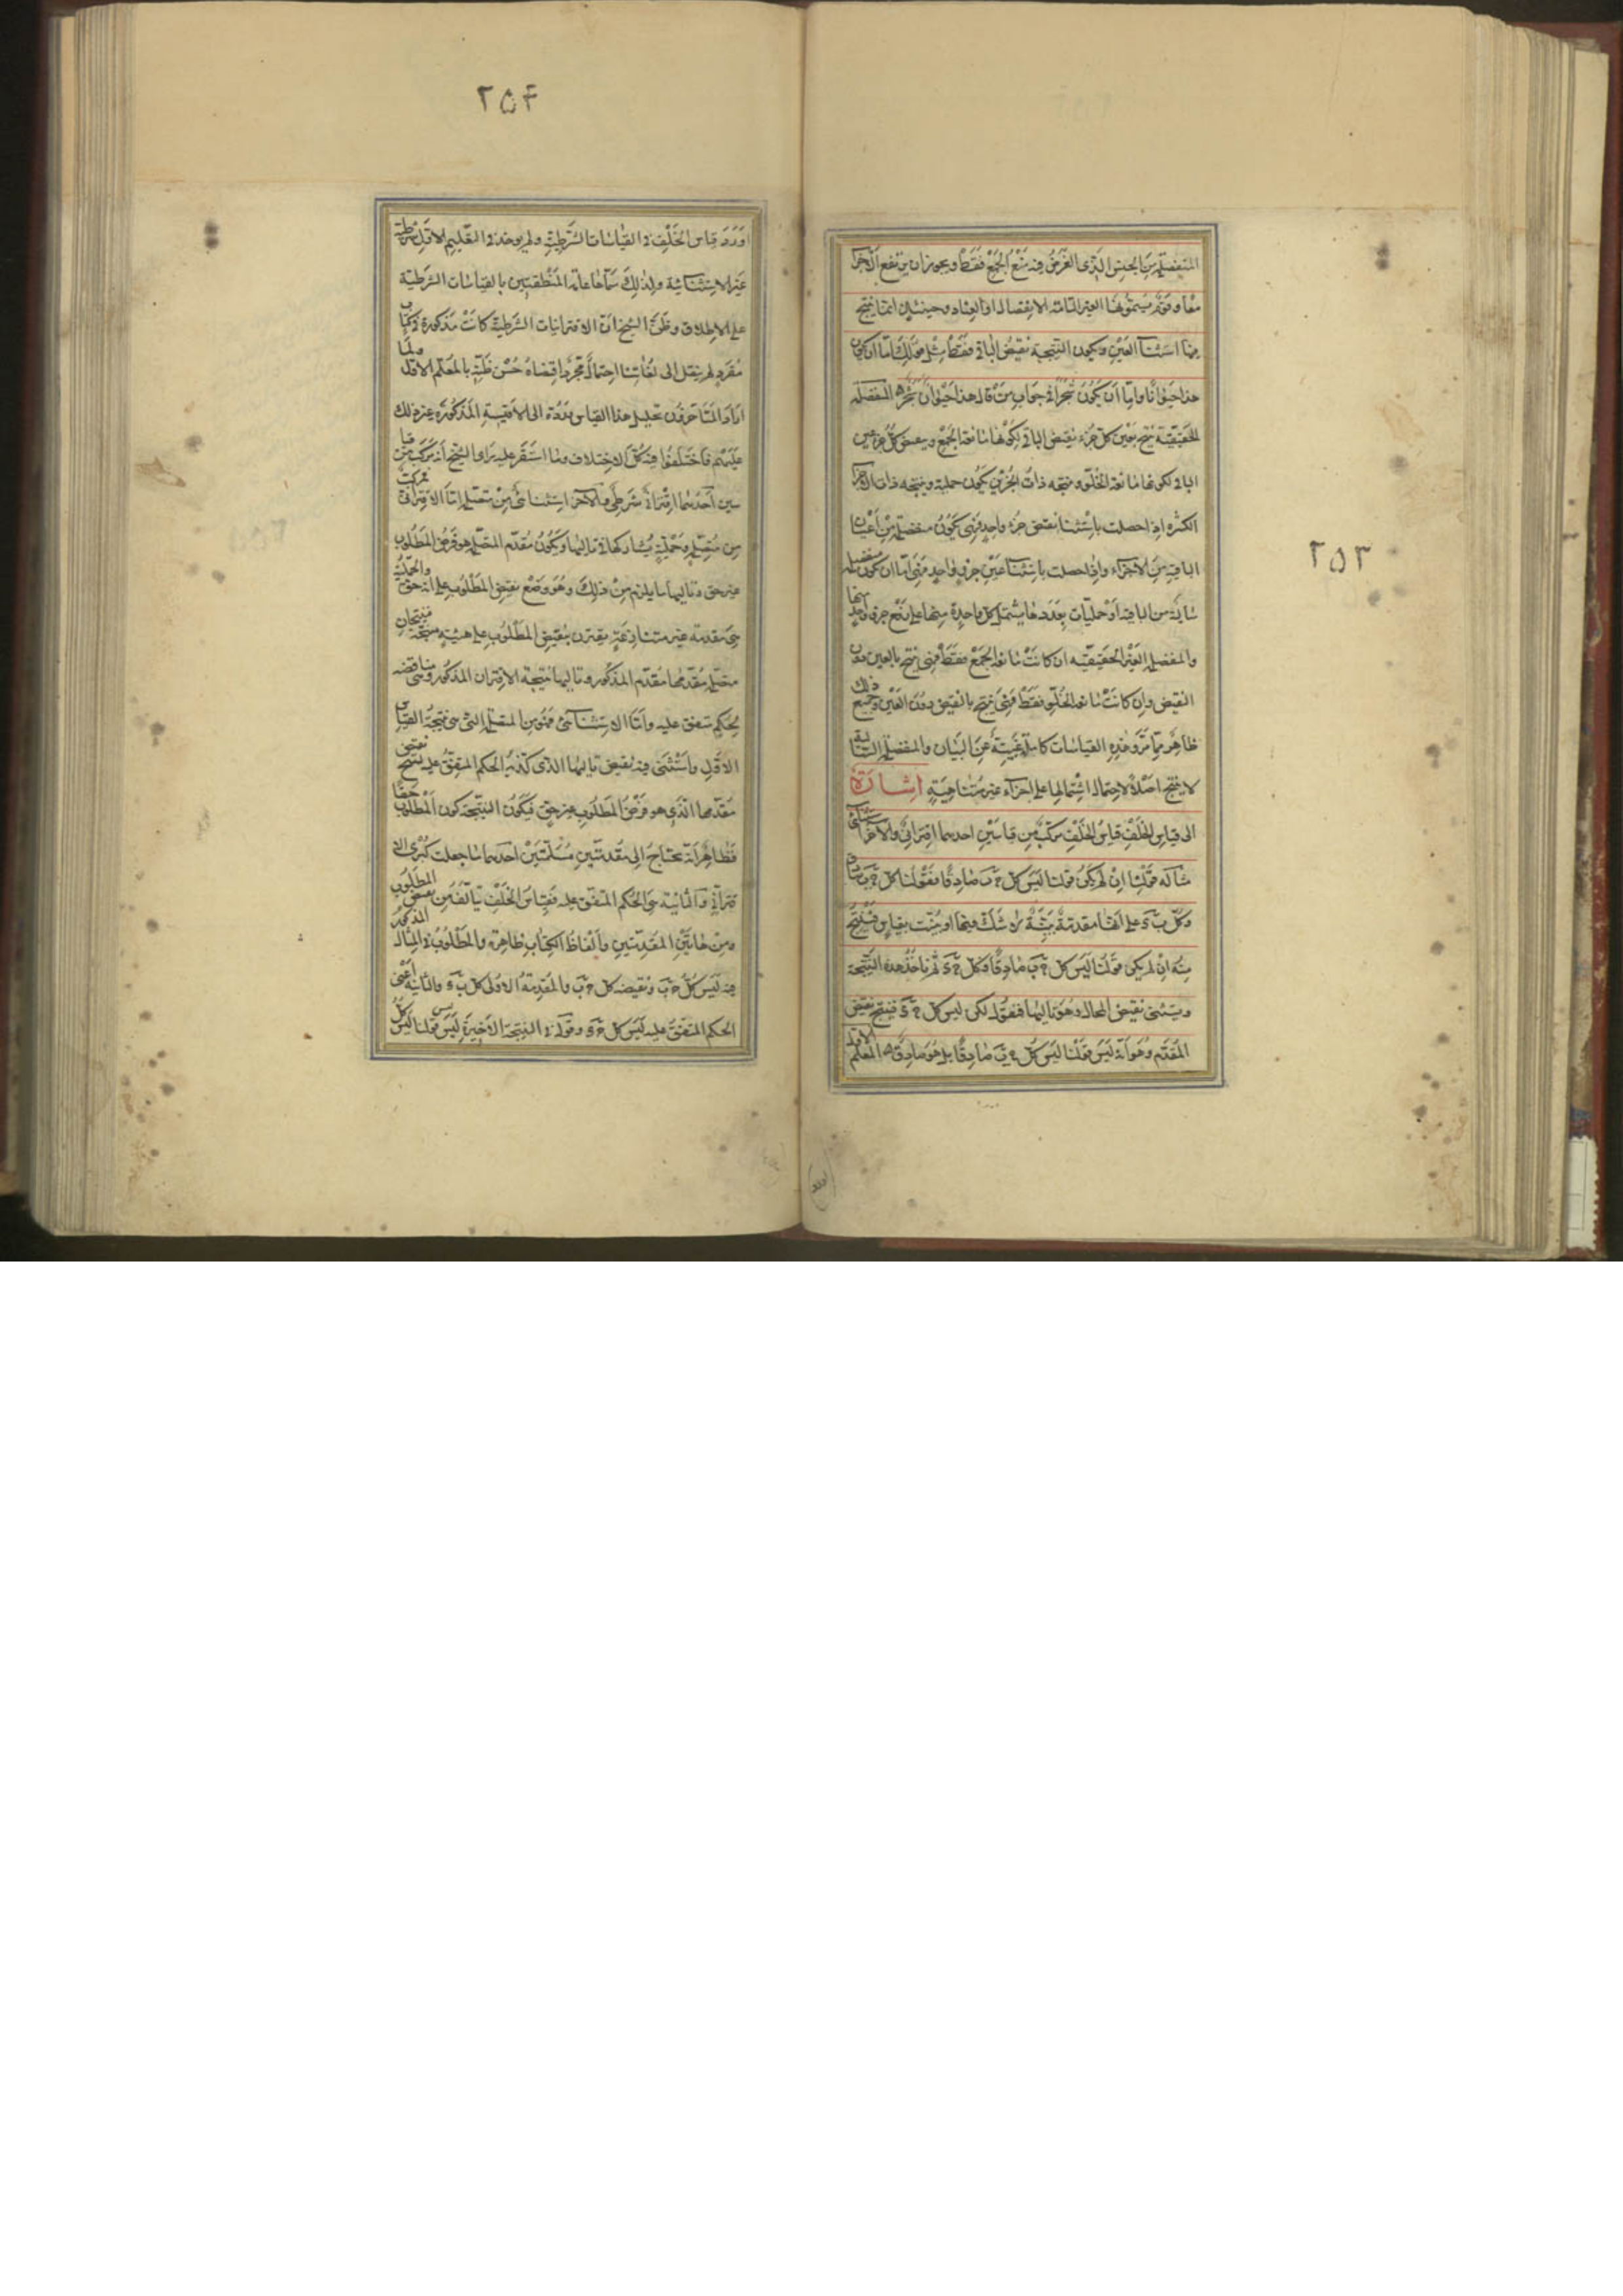 ٢٥٣
المنفصلة من الجنس الذى الغرض منه منع الجمع فقط ويجوز ان يرتفع الاجزآ
معًا وقوم يسمونها الغير التامة الانفصال او العناد وحينئذٍ انما ينتج
منها استثنآ العين ويكون النتيجة نقيض الباقى فقط مثل قولك اما ان يكون
هذا حيوانًا واما ان يكون شجرًا فى جواب من قال هذا حيوان شجر المنفصلة
الحقيقية ينتج بعين كل جزء نقيض الباقى لكونها مانعة الجمع وبنقيض كل جزء عين
الباقى لكونها مانعة الخلو ونتيجة ذات الجزئين يكون حملية ونتيجة ذات الاجزآ
الكثيرة اذا حصلت باستثنآ نقيض جزء واحد فهى يكون منفصلة من اعيان
الباقية من الاجزآء واذا حصلت باستثنآ عين جزو واحد فهى اما ان يكون منفصلة
سالبة من الباقية او حمليات بعددها يشتمل كل واحدة منها على رفع جزو واحد منها
والمنفصلة الغير الحقيقيه ان كانت مانعة الجمع فقط فهى ينتج بالعين دون
النقيض وان كانت مانعة الخلو فقط فهى ينتج بالنقيض دون العين وجميع ذلك
ظاهر مما مر وهذه القياسات كاملة غنية عن البيان والمنفصلة السالبة
لا ينتج اصلًا لاحتمال اشتمالها على اجزآء غير متناهية اشارة
الى قياس الخلف قياس الخلف مركب من قياسين احدهما اقترانى والاخر استثنائى
مثاله قولنا ان لم يكن قولنا ليس كل ج ب صادقًا فقولنا كل ج ب صادق
وكل ب د على انها مقدمة بينة لا شك فيها او بينت بقياس فينتج
منه ان لم يكن قولنا ليس كل ج ب صادقًا فكل ج د ثم ناخذ هذه النتيجة
ويستثنى نقيض المحال وهو تاليها فنقول لكن ليس كل ج د فينتج نقيض
المقدم وهو انه ليس قولنا ليس كل ج ب صادقًا بل هو صادق المعلم الاول
٢٥۴
اورد قياس الخلف فى القياسات الشرطية ولم يوجد فى التعليم الاول شرطية
غير الاستثنائية ولذلك سماها عامة المنطقيين بالقياسات الشرطية
على الاطلاق وظن الشيخ ان الاقترانيات الشرطية كانت مذكورة فى كتاب
مفرد لم ينقل الى لغاتنا احتمال مجرد اقتضاه حسن ظنه بالمعلم الاول ولما
اراد المتاخرون تحليل هذا القياس ورده الى الاقيسة المذكورة عز ذلك
عليهم فاختلفوا فيه كل الاختلاف وما استقر عليه رأى الشيخ انه مركب من قيا
سين احدهما اقترانى شرطى والاخر استثنائى من متصلة اما الاقترانى فمركب
من متصلة وحملية يشاركها فى تاليها ويكون مقدم المتصلة هو فرض المطلوب
غير حق وتاليها ما يلزم من ذلك وهو وضع نقيض المطلوب على انه حق والحملية
هى مقدمة غير متنازعة يقترن بنقيض المطلوب على هيئة منتجة فينتجان
متصلة مقدمها مقدم المذكور وتاليها نتيجة الاقتران المذكور وهى مناقضه
لحكم متفق عليه واما الاستثنائى فهو من المتصلة التى هى نتيجة القياس
الاول واستثنى فيه نقيض تاليها الذى كذبه الحكم المتفق عليه لينتج نقيض
مقدمها الذى هو فرض المطلوب غير حق فيكون النتيجة كون المطلوب حقا
فظاهر انه يحتاج الى مقدمتين مسلمتين احدهما ما جعلت كبرى الا
قترانى والثانية هى الحكم المتفق عليه فقياس الخلف يتالف من نقيض المطلوب
ومن هاتين المقدمتين والفاظ الكتاب ظاهرة والمطلوب فى المثال المذكور
فيه ليس كل ج ب ونقيضه كل ج ب والمقدمة الاولى كل ب د والثانية اعنى
الحكم المتفق عليه ليس كل ج د وقوله فى النتيجة الاخيرة ليس قولنا ليس كل